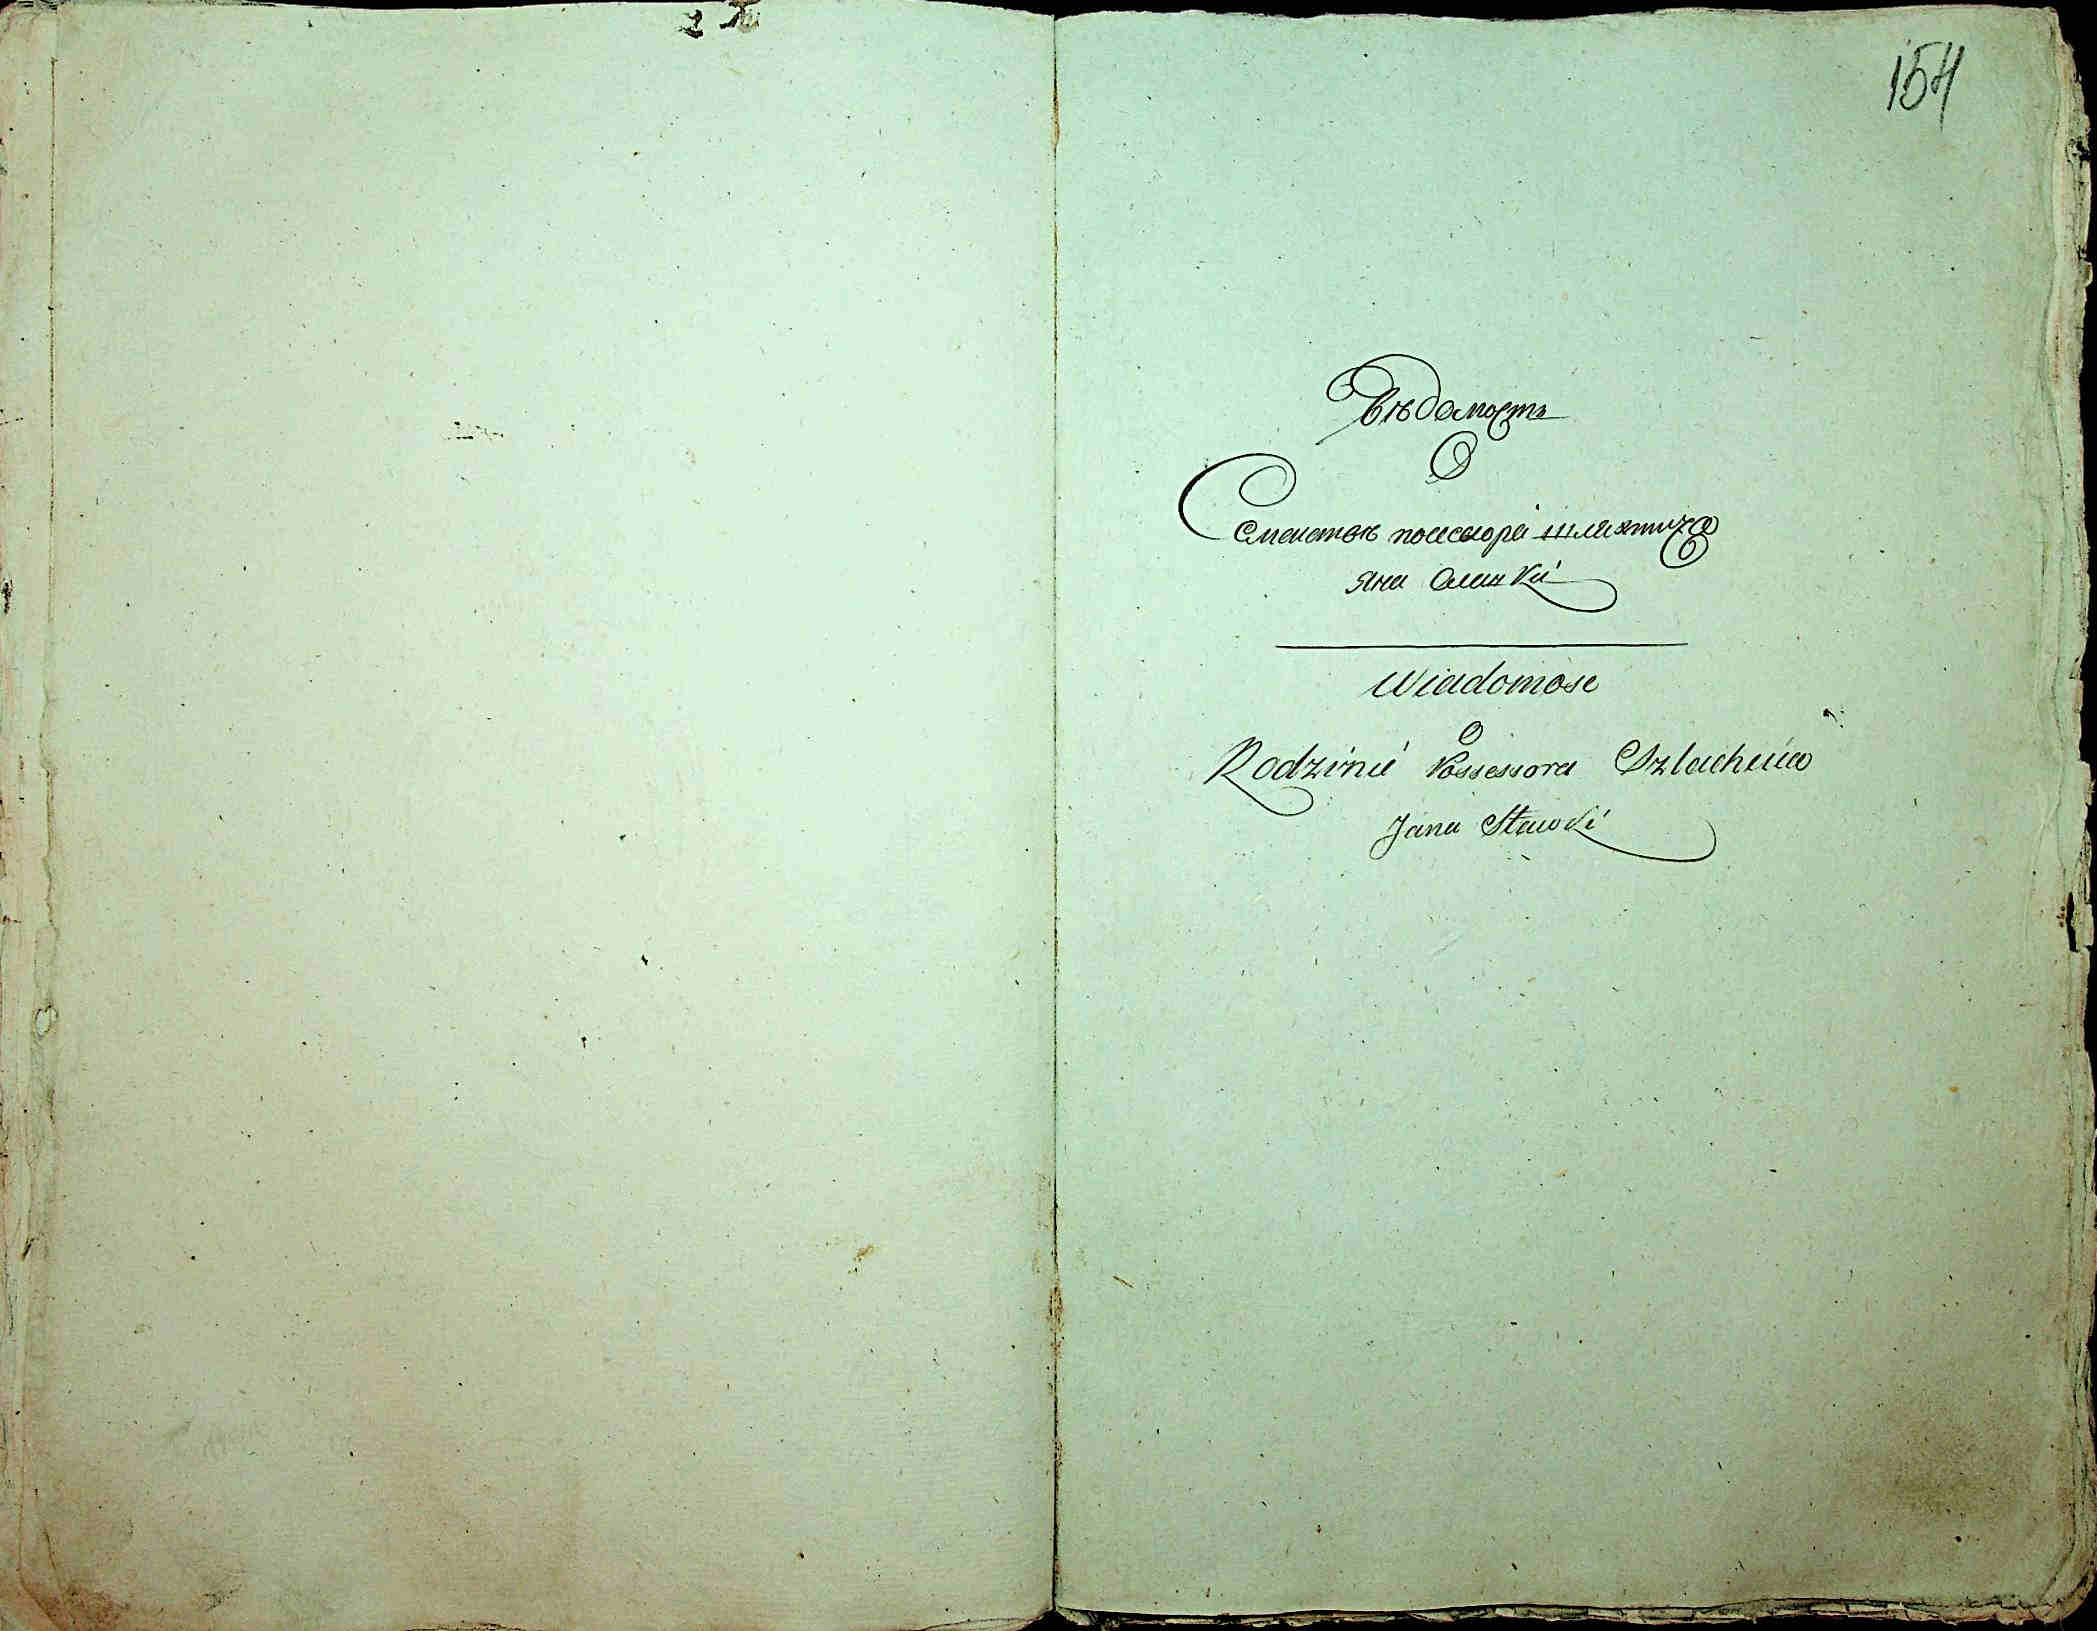 154
Вѣдомость
О
Семействѣ посессора шляхтича
Яна
Wiadomosc
O
Rodzinie Possessora Szlachcica
Jana